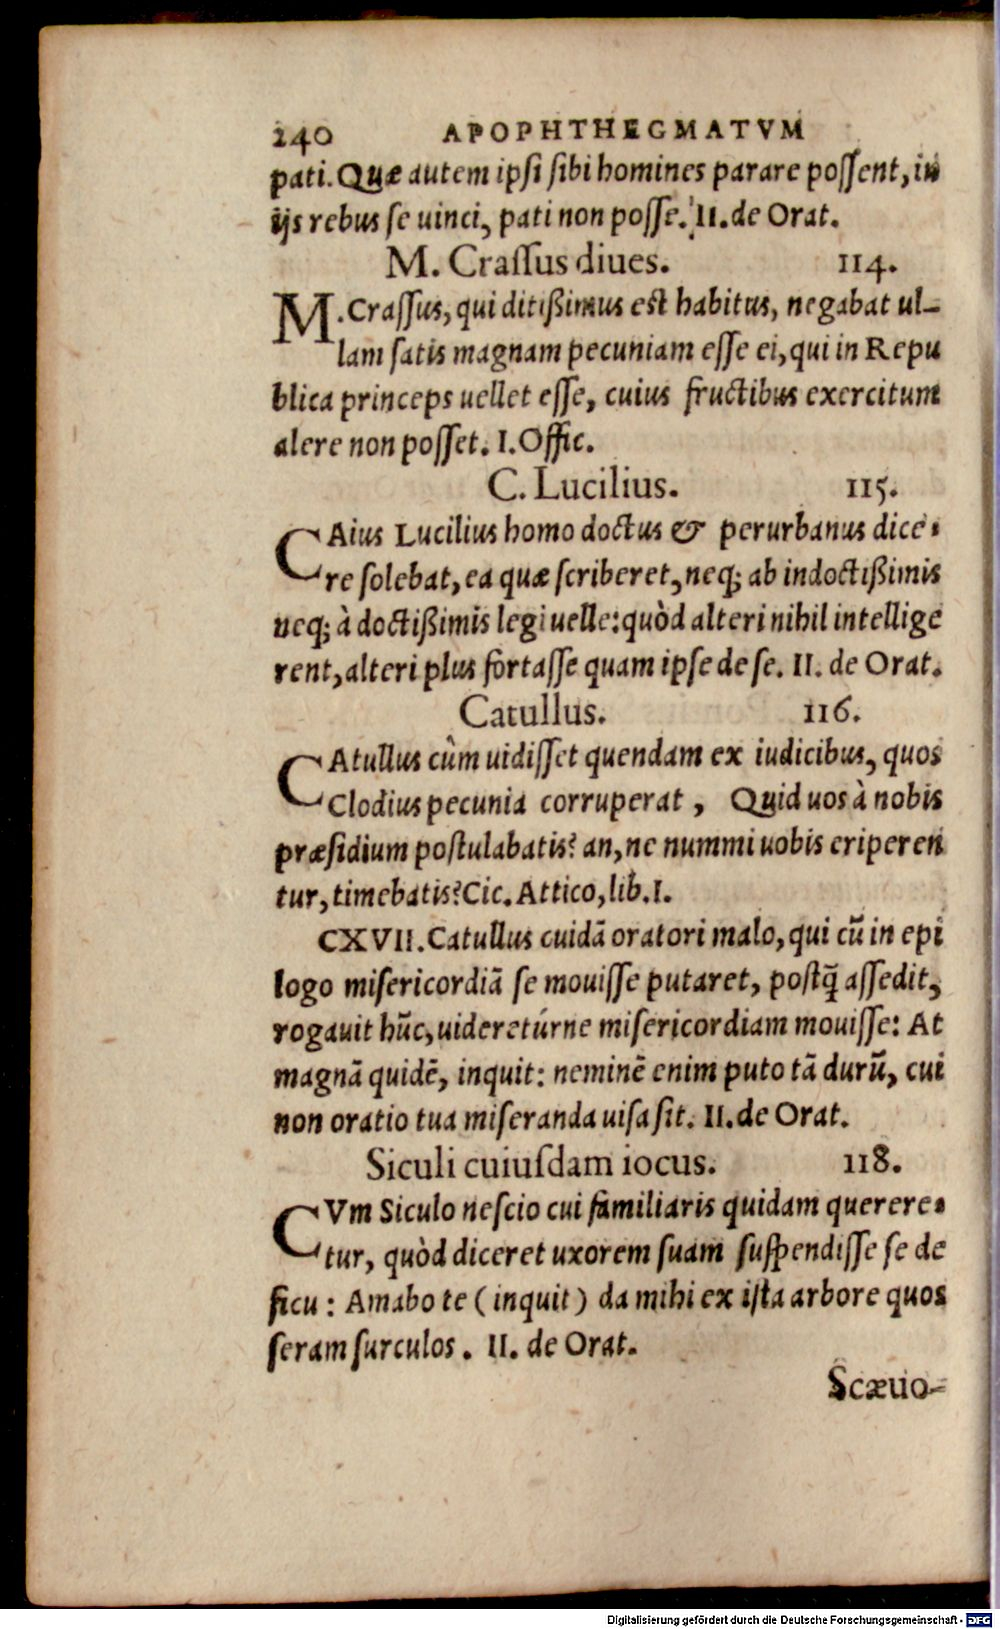 240 APOPHTHEGMATVM
pati. Quæ autem ipsi sibi homines parare possent, in
ijs rebus se uinci, pati non posse. II. de Orat.
M. Crassus diues. 114.
M. Crassus, qui ditißimus est habitus, negabat ul-
lam satis magnam pecuniam esse ei, qui in Repu
blica princeps uellet esse, cuius fructibus exercitum
alere non posset. I. Offic.
C. Lucilius. 115.
CAius Lucilius homo doctus & perurbanus dice-
re solebat, ea quæ scriberet, neq; ab indoctißimis
neq; à doctißimis legi uelle: quòd alteri nihil intellige
rent, alteri plus fortasse quam ipse de se. II. de Orat.
Catullus. 116.
CAtullus cûm uidisset quendam ex iudicibus, quos
Clodius pecunia corruperat, Quid uos à nobis
præsidium postulabatis? an, ne nummi uobis eriperen
tur, timebatis? Cic. Attico, lib. I.
CXVII. Catullus cuidā oratori malo, qui cū in epi
logo misericordiā se mouisse putaret, postq̄ assedit,
rogauit hūc, uideretúrne misericordiam mouisse: At
magnā quidē, inquit: neminē enim puto tā durū, cui
non oratio tua miseranda uisa sit. II. de Orat.
Siculi cuiusdam iocus. 118.
CVm Siculo nescio cui familiaris quidam querere-
tur, quòd diceret uxorem suam suspendisse se de
ficu: Amabo te (inquit) da mihi ex ista arbore quos
seram surculos. II. de Orat.
Scæuo-
Digitalisierung gefördert durch die Deutsche Forschungsgemeinschaft - DFG